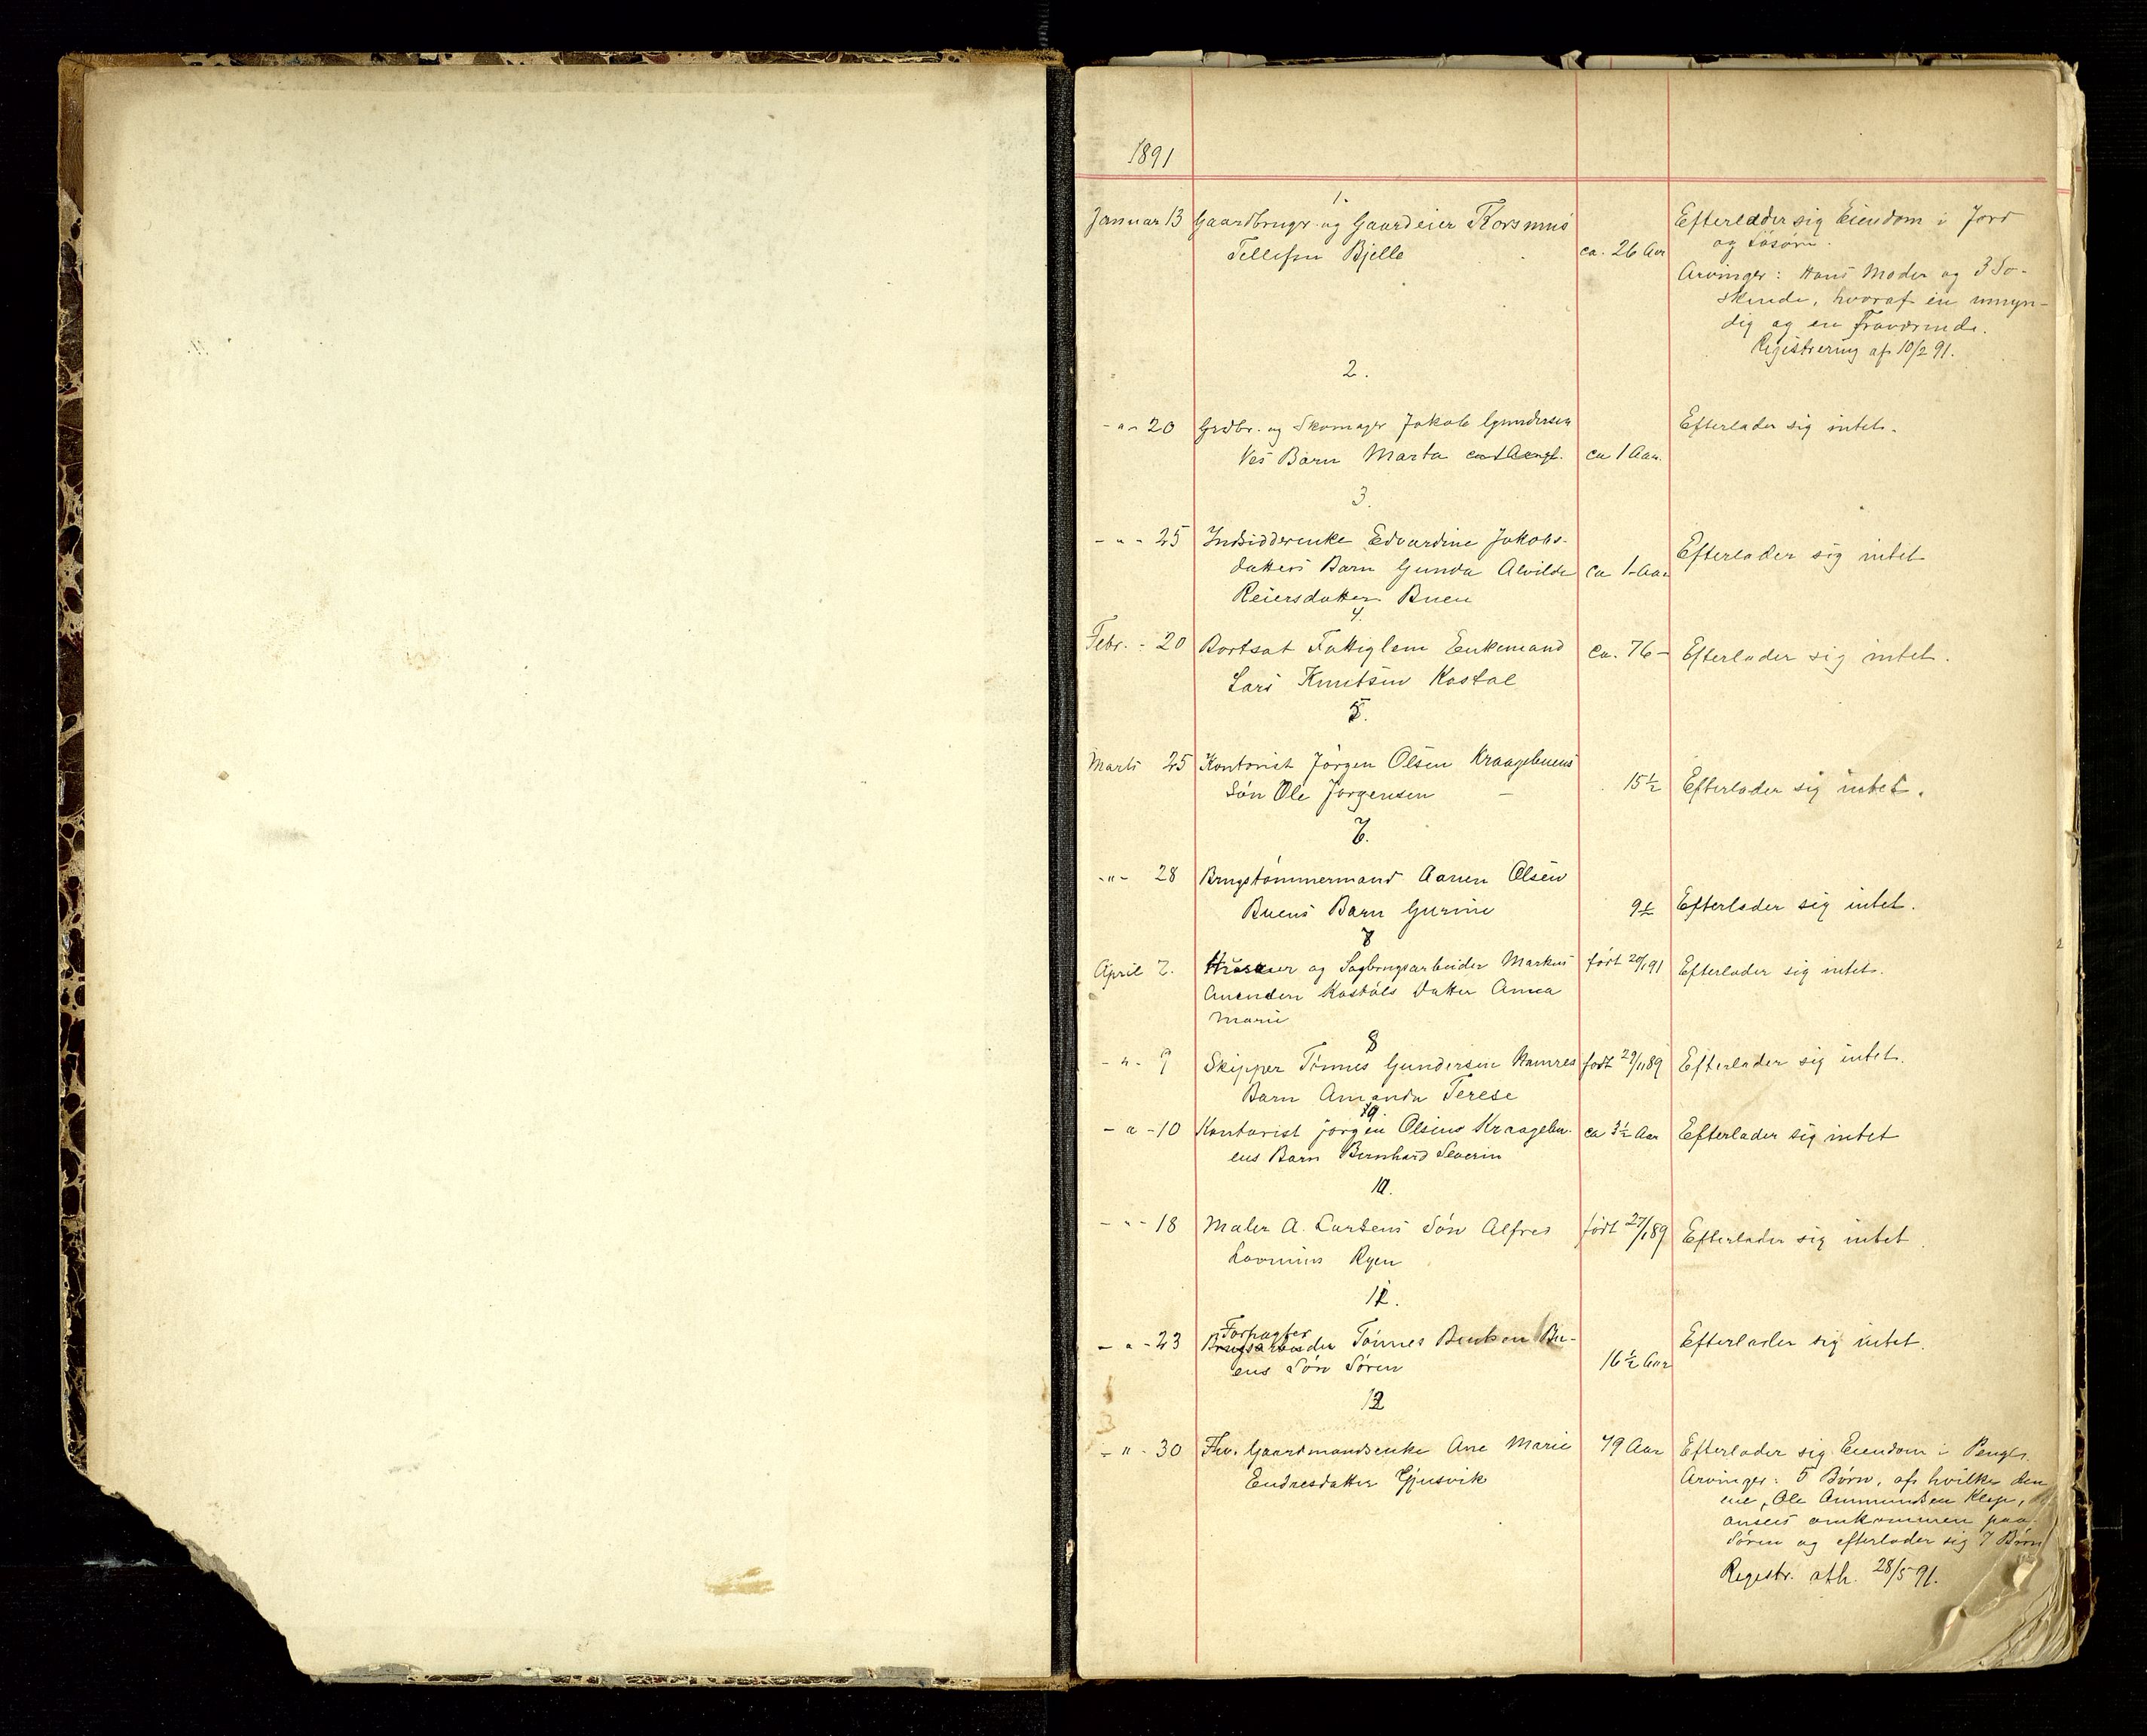 1891
1.
Januar 13 Gaardbruger og Gaardeier Rorsmus ca. 26 Aar Efterlader sig Eiendom i Jord
Tellefsen Bjelle og Løsøre.
Arvinger: Hans Moder og 3 Sø-
skende, hvoraf en umyn-
dig og en fraværende.
Registrering af 10/2 91.
2.
- " - 20 Grdbr. og Skomager Jakob Gundersen Efterlader sig intet.
Ves Barn Marta ca 1 Aar.
3.
- " - 25 Indsidderenke Edvardine Jakobs- Efterlader sig intet
datters Barn Gunda Alvilde ca 1 Aar
Reiersdatter Buen
4.
Febr. - 20 Bortsat Fattiglem Enkemand ca. 76 - Efterlader sig intet.
Lars Knutsen Kastal
5.
Marts 25 Kontorist Jørgen Olsen Kraagebuens
Søn Ole Jørgensen - 15½ Efterlader sig intet.
6.
- " - 28 Brugstømmermand Aanen Olsen
Buens Barn Gurine 9½ Efterlader sig intet.
7
April 2. Huseier og Sagbrugsarbeider Markus født 20/1 91 Efterlader sig intet.
Anensen Kastals Datter Anna
Marie
8
- " - 9 Skipper Tønnes Gundersen Hamres født 29/11 89 Efterlader sig intet.
Barn Amanda Terese
9.
- " - 10 Kontorist Jørgen Olsens Kraagebu- ca 3½ Aar Efterlader sig intet
ens Barn Bernhard Severin
10.
- " - 18 Maler A. Larsens Søn Alfred født 27/1 89 Efterlader sig intet
Ryen
11.
Forpagter
- " - 23 Brugsarbeider Tønnes Bentsen Bu- 16½ Aar Efterlader sig intet.
ens Søn Søren
12
- " - 30 Fhv. Gaardmandsenke Ane Marie 79 Aar Efterlader sig Eiendom i Penge.
Endresdatter Gjusvik Arvinger: 5 Børn, af hvilke den
ene, Ole Ammundsen Klep,
ansees omkommen paa
Søen og efterlader sig 7 Børn
Registr. afh. 28/5 91.